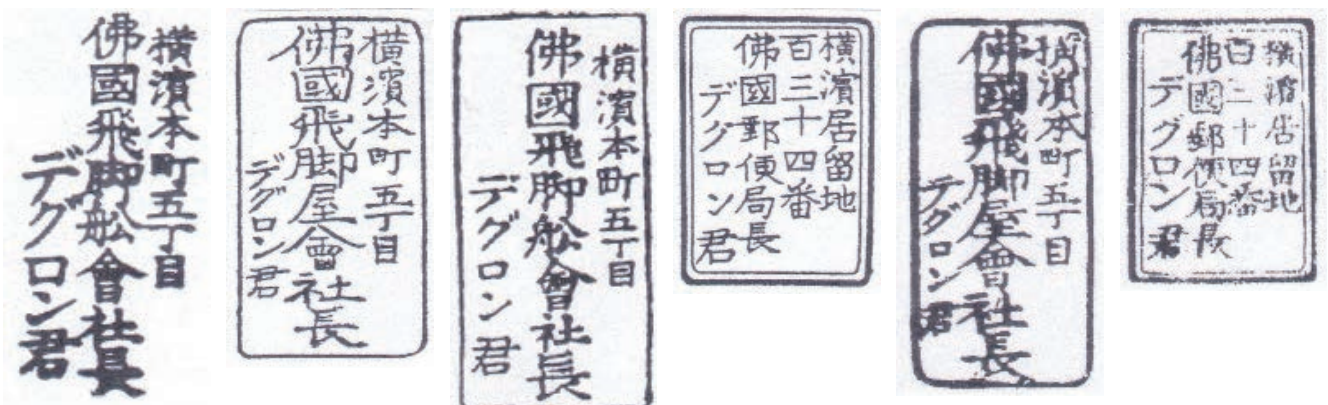 横濱本町五丁目
佛國飛脚舩會社長
デグロン君
横濱本町五丁目
佛國飛脚屋會社長
デグロン君
横濱本町五丁目
佛國飛脚舩會社長
デグロン君
横濱居留地
百三十四番
佛國郵便局長
デグロン君
横濱本町五丁目
佛國飛脚屋會社長
デグロン君
横濱居留地
百三十四番
佛國郵便局長
デグロン君